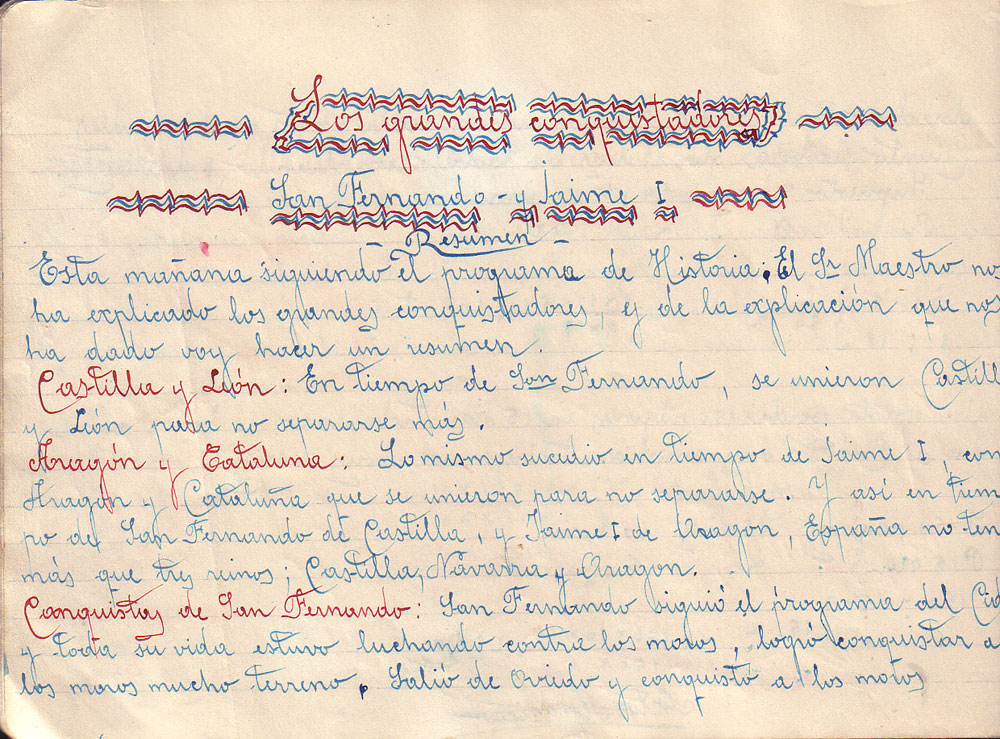 Los grandes conquistadores
San Fernando - y Jaime I
- Resumen -
Esta mañana siguiendo el programa de Historia; El Sr Maestro nos
ha explicado los grandes conquistadores y de la explicación que nos
ha dado voy hacer un resumen.
Castilla y León: En tiempo de San Fernando, se unieron Castill
y León para no separarse más.
Aragón y Cataluna: Lo mismo sucedio en tiempo de Jaime I, con
Aragon y Cataluña que se unieron para no separarse. Y así en tiem
po de San Fernando de Castilla, y Jaime I de Aragon, España no ten
más que tres reinos; Castilla, Navarra y Aragon.
Conquistas de San Fernando: San Fernando siguió el programa del Cid
y toda su vida estuvo luchando contra los moros, logró conquistar a
los moros mucho terreno. Salió de Oviedo y conquisto a los moros